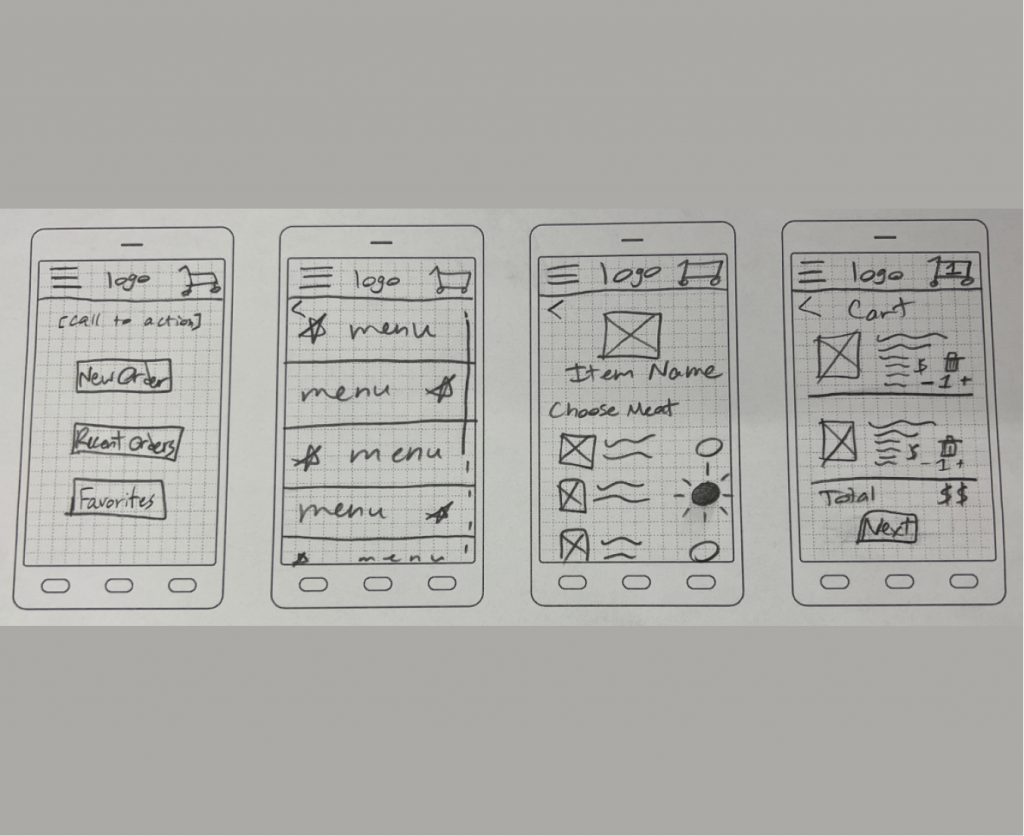 logo
[call to action]
New Order
Recent Orders
Favorites
logo
<
menu
menu
menu
menu
menu
logo
<
Item Name
Choose Meat
logo 1
< Cart
$
- 1 +
$
- 1 +
Total $$
Next